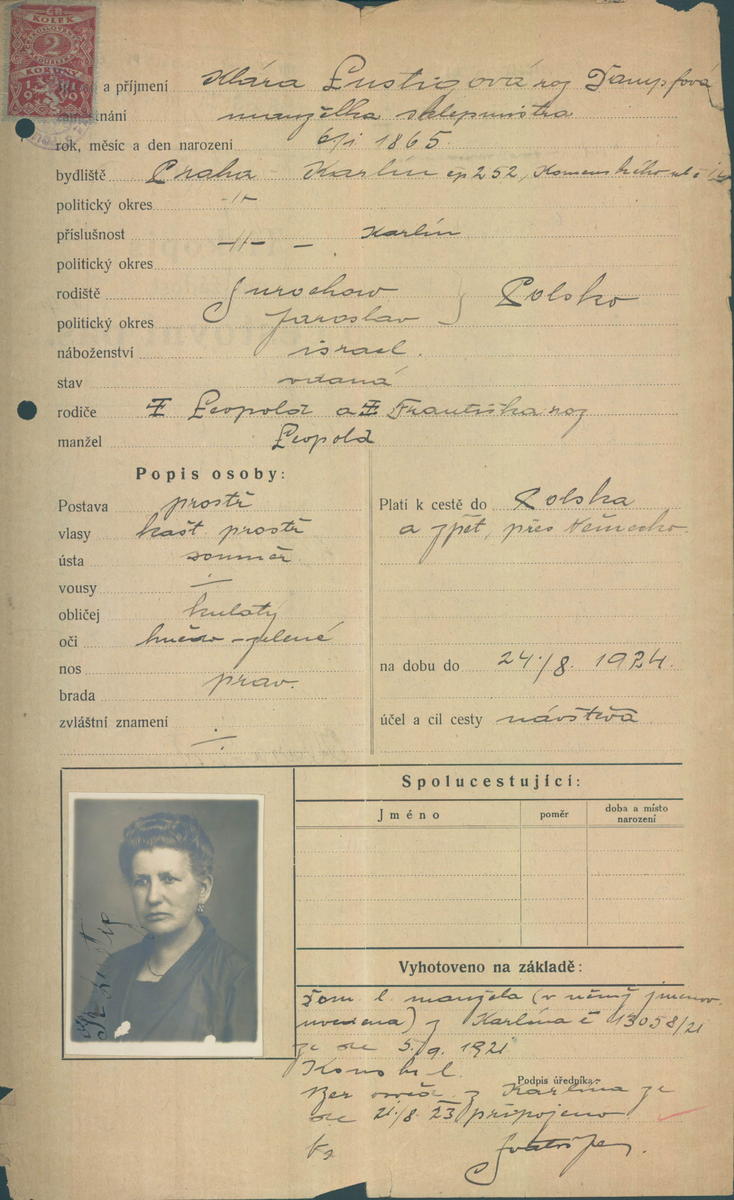 KOLEK
2
KORUNY
1919
a příjmení Klára Lustigová roz Dampfová
manželka sklepmistra
rok, měsíc a den narození 6/1 1865.
bydliště Praha - Karlín čp 252, Komenského ul č
politický okres -"-
příslušnost -"- - Karlín
politický okres
rodiště Surochow } Polsko
politický okres Jaroslav
náboženství israel.
stav vdaná
rodiče Leopold a Františka roz
manžel Leopold
Popis osoby:
Postava prostř
vlasy kašt prostř
ústa souměr
vousy ÷
obličej kulatý
oči hnědo-zelené
nos prav.
brada
zvláštní znamení ÷
Platí k cestě do Polska
a zpět, přes Německo.
na dobu do 24./8. 1924.
účel a cíl cesty návštěva
Spolucestující:
Jméno poměr doba a místo narození
Vyhotoveno na základě:
Dom. l. manžela (v němž jmenov.
uvedena) z Karlína č 13058/21
ze dne 5./9. 1921
Podpis úředníka:
z Karlína ze
dne 21./8. 23 připojeno